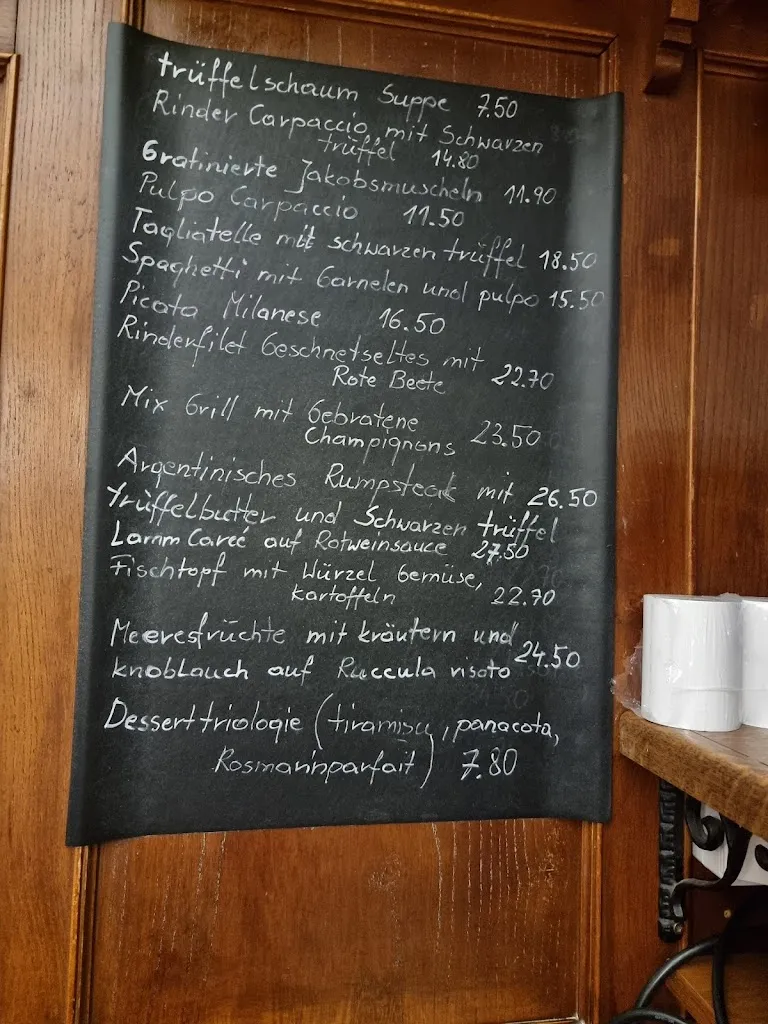 trüffelschaum Suppe 7.50
Rinder Carpaccio mit Schwarzen
trüffel 14.80
Gratinierte Jakobsmuscheln 11.90
Pulpo Carpaccio 11.50
Tagliatelle mit schwarzen trüffel 18.50
Spaghetti mit Garnelen und pulpo 15.50
Picata Milanese 16.50
Rinderfilet Geschnetseltes mit
Rote Beete 22.70
Mix Grill mit Gebratene
Champignons 23.50
Argentinisches Rumpsteak mit 26.50
trüffelbutter und Schwarzen trüffel
Lamm Careé auf Rotweinsauce 27.50
Fischtopf mit Würzel Gemüse,
kartoffeln 22.70
Meeresfrüchte mit kräutern und
knoblauch auf Ruccula risoto 24.50
Dessert triologie (tiramisu, panacota,
Rosmarinparfait) 7.80